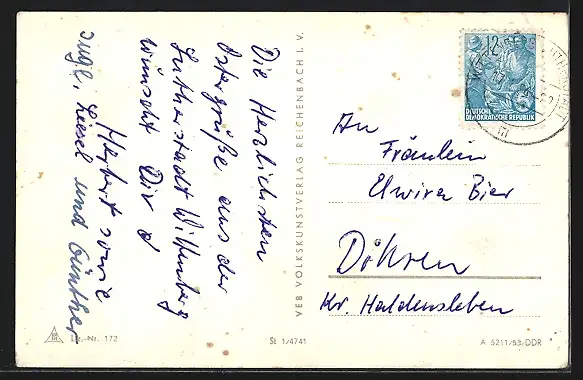 Die Herzlichsten
Ostergrüße aus der
Lutherstadt Wittenberg
wünscht Dir
Herbert sowie
Liesel und Günther
VEB VOLKSKUNSTVERLAG REICHENBACH I. V.
12
DEUTSCHE
DEMOKRATISCHE REPUBLIK
An
Fräulein
Elwira Bier
Döhren
Kr. Haldensleben
Liz.-Nr. 172
St 1/4741
A 5211/53/DDR